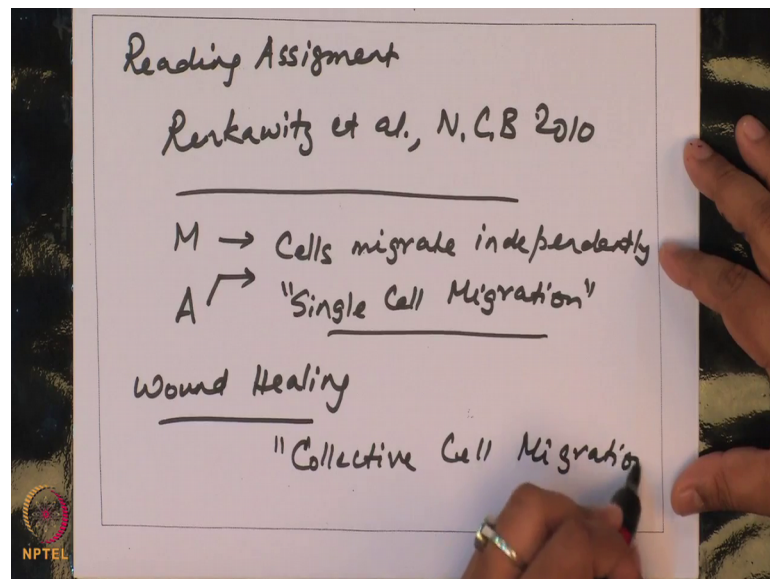 Reading Assigment
Renkawitz et al., N.C,B 2010
M → Cells migrate independently
A → "Single Cell Migration"
Wound Healing
"Collective Cell Migration
NPTEL